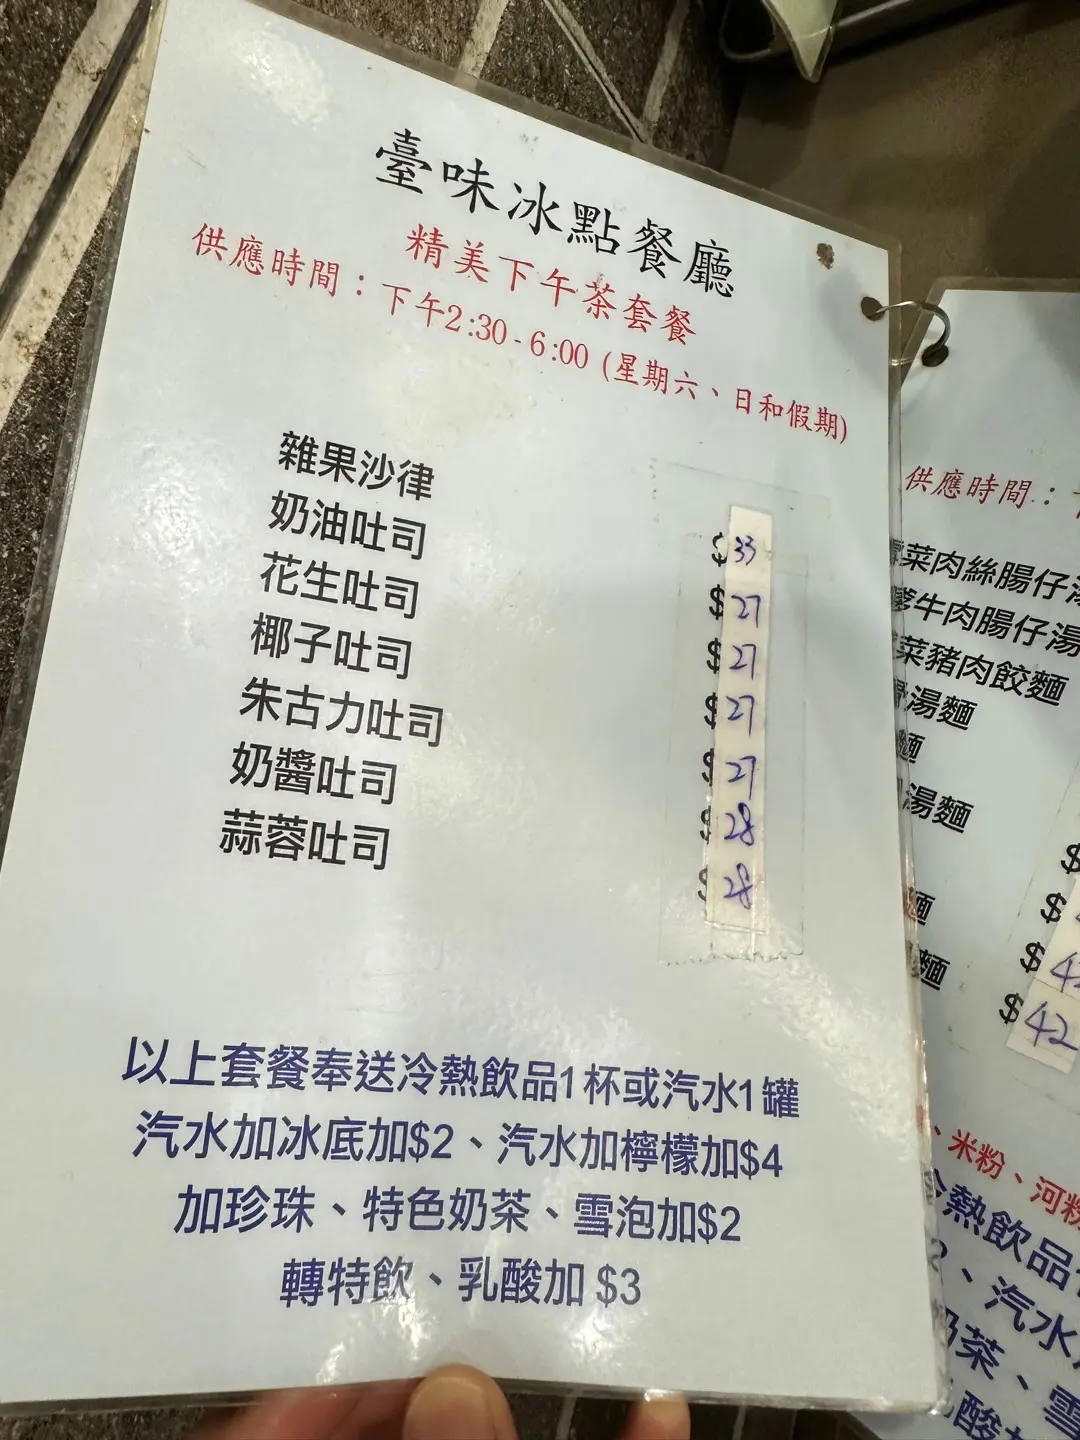 臺味冰點餐廳
精美下午茶套餐
供應時間：下午2:30-6:00 (星期六、日和假期)
雜果沙律 $33
奶油吐司 $27
花生吐司 $27
椰子吐司 $27
朱古力吐司 $27
奶醬吐司 $28
蒜蓉吐司 $28
以上套餐奉送冷熱飲品1杯或汽水1罐
汽水加冰底加$2、汽水加檸檬加$4
加珍珠、特色奶茶、雪泡加$2
轉特飲、乳酸加 $3
供應時間：
菜肉絲腸仔湯
牛肉腸仔湯
菜豬肉餃麵
湯麵
麵
湯麵
麵
麵
$
$
$4
$42
、米粉、河粉
冷熱飲品
、汽水
奶茶、雪
酸加